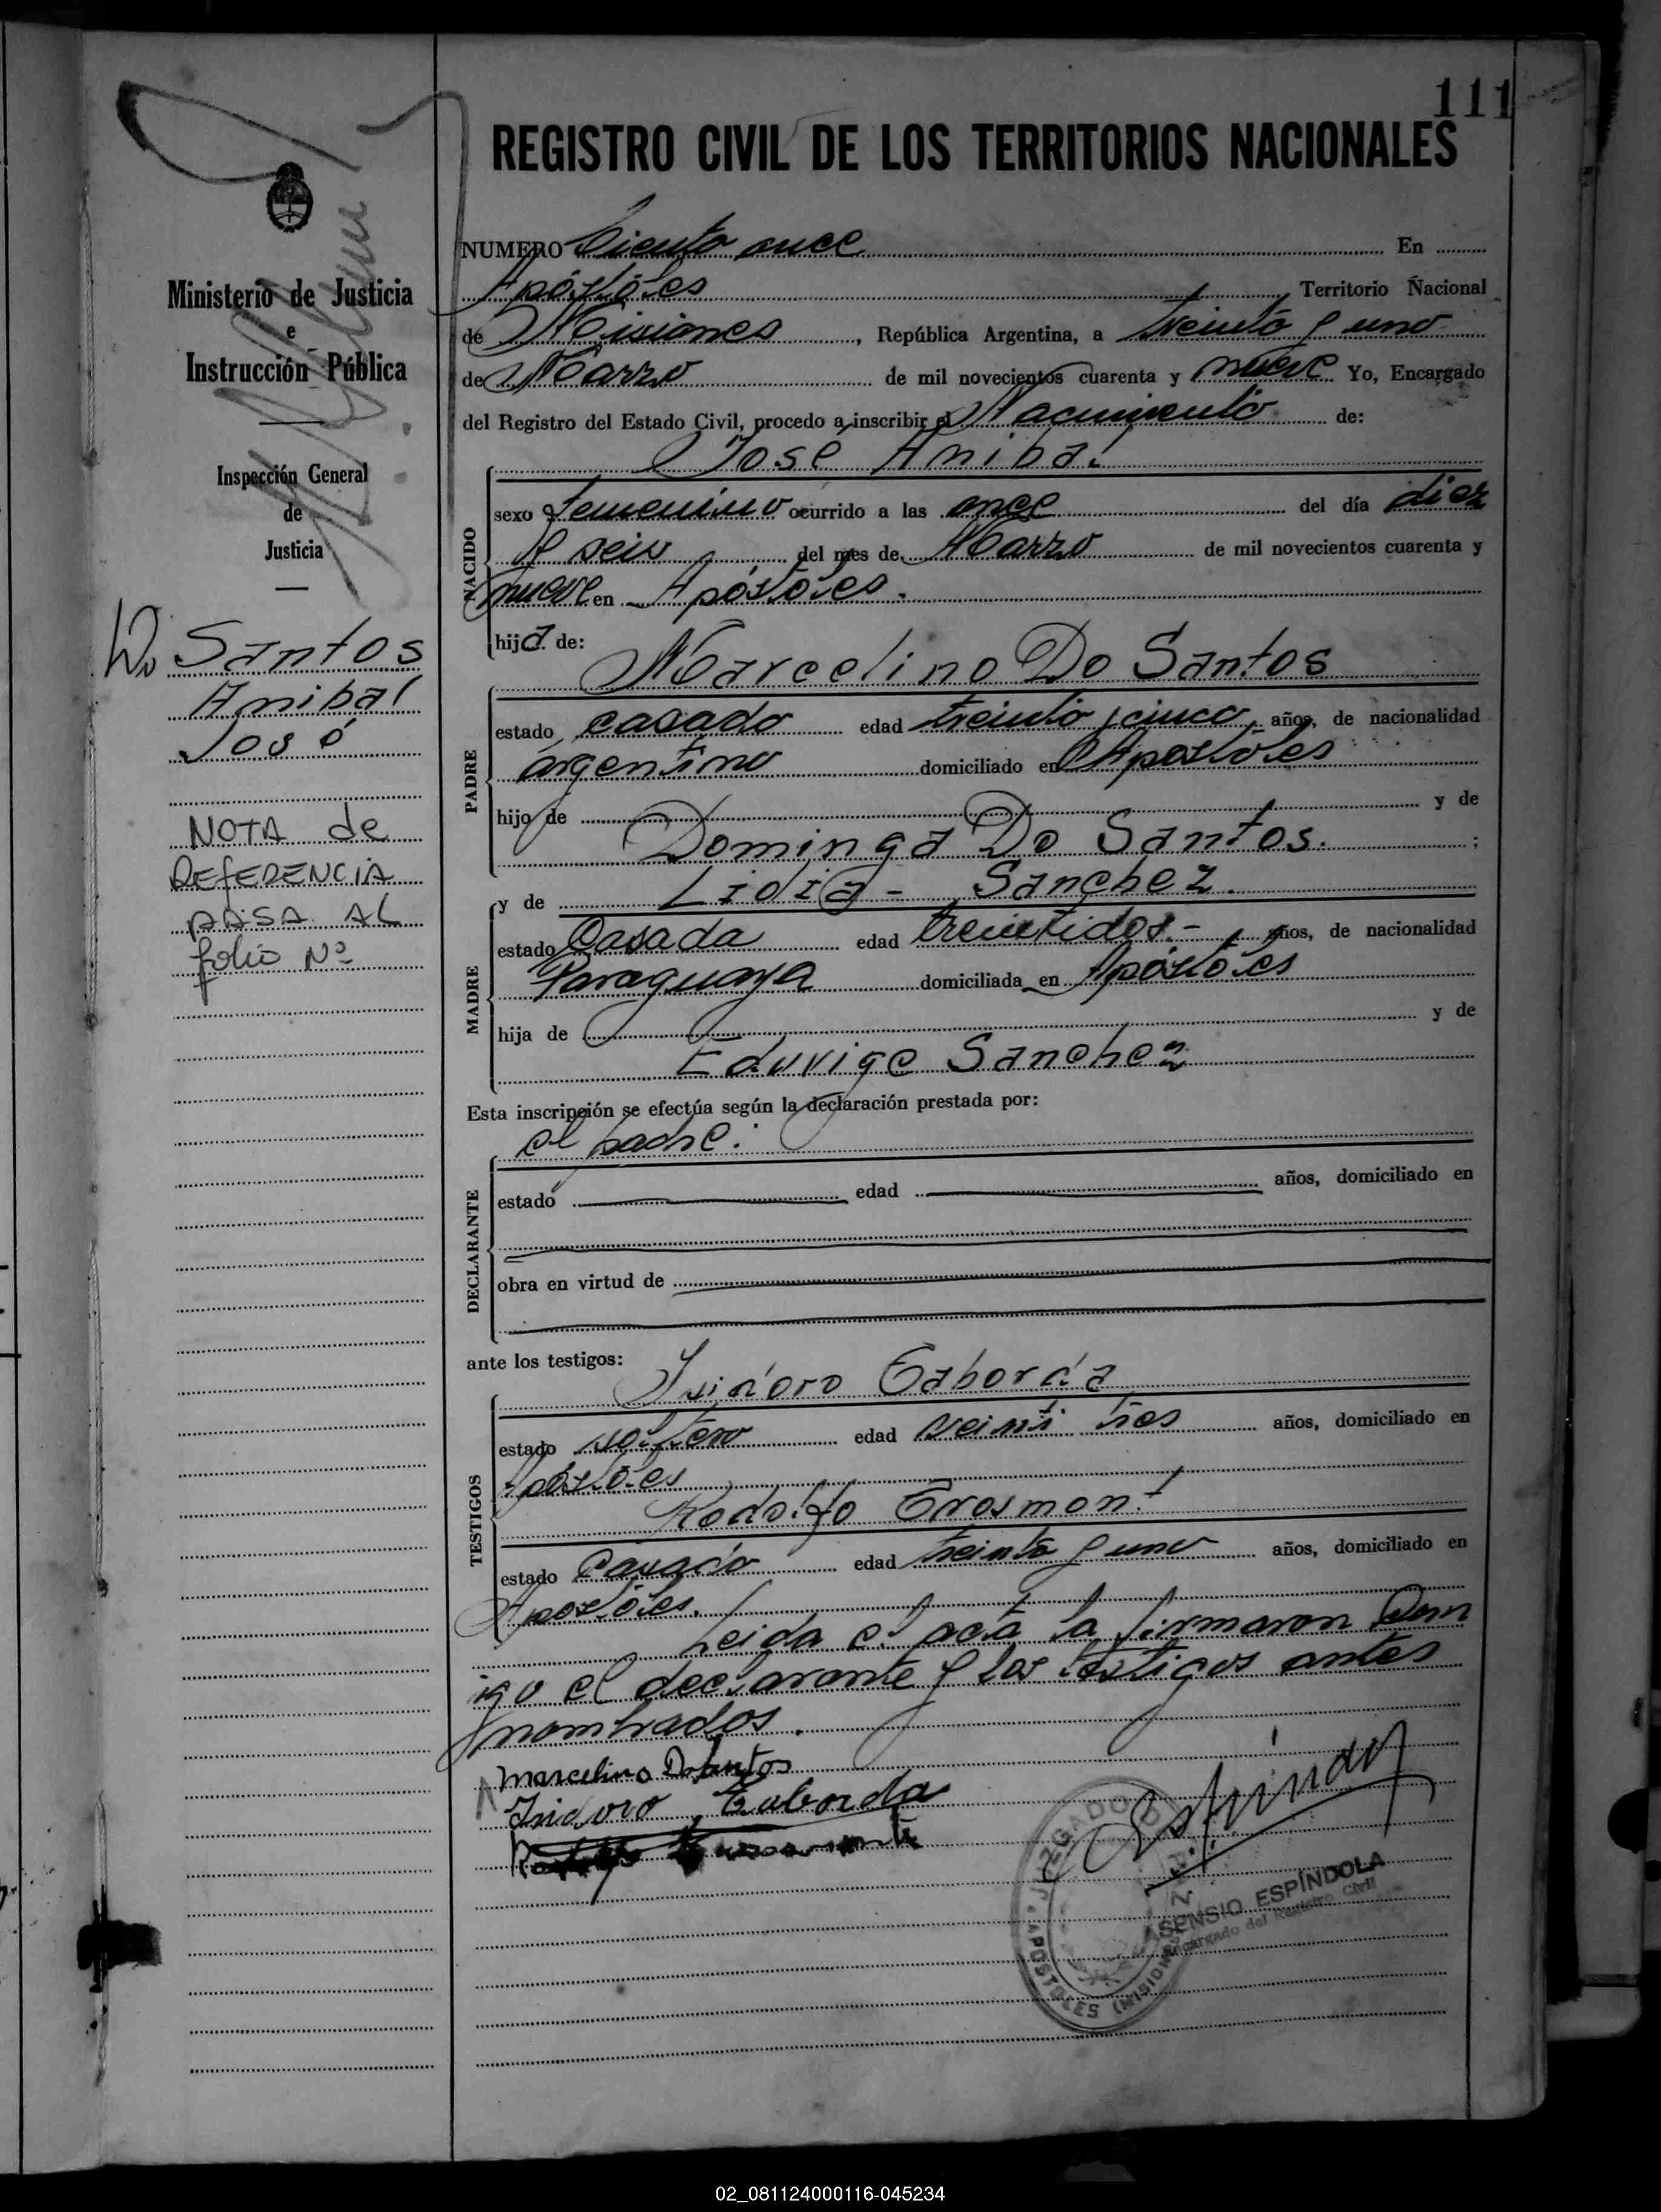 111
REGISTRO CIVIL DE LOS TERRITORIOS NACIONALES
NUMERO Ciento once En
Apóstoles Territorio Nacional
de Misiones, República Argentina, a treinta y uno
de Marzo de mil novecientos cuarenta y nueve Yo, Encargado
del Registro del Estado Civil, procedo a inscribir el Nacimiento de:
José Anibal
NACIDO
sexo femenino ocurrido a las once del día diez
y seis del mes de Marzo de mil novecientos cuarenta y
nueve en Apóstoles.
hija de:
Marcelino Do Santos
PADRE
estado casado edad treinta y cinco años, de nacionalidad
argentino domiciliado en Apostoles
hijo de y de
Dominga Do Santos. ;
y de Lidia - Sanchez.
MADRE
estado Casada edad treintidos.- años, de nacionalidad
Paraguaya domiciliada en Apóstoles
hija de y de
Eduvige Sanchez
Esta inscripción se efectúa según la declaración prestada por:
el padre.
DECLARANTE
estado edad años, domiciliado en
obra en virtud de
ante los testigos:
Isidoro
TESTIGOS
estado soltero edad veinti tres años, domiciliado en
Apóstoles
Rodolfo
estado Casado edad treinta y uno años, domiciliado en
Apostoles.
Leida el acta la firmaron Con
igo el declarante y los testigos antes
nombrados.
Marcelino Dosantos
Isidoro Taborda
Ministerio de Justicia
e
Instrucción Pública
Inspección General
de
Justicia
Do Santos
Anibal
José
NOTA de
REFERENCIA
PASA AL
folio Nº
JUZGADO DE PAZ
APOSTOLES (MISIONES)
ASENSIO ESPÍNDOLA
Encargado del Registro Civil
02_081124000116-045234